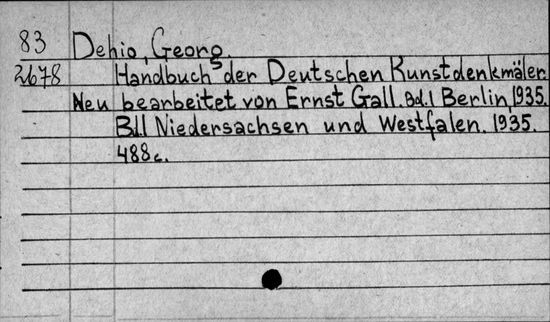 83 Dehio, Georg.
2678 Handbuch der Deutschen Kunstdenkmäler.
Neu bearbeitet von Ernst Gall. Bd.1 Berlin, 1935.
Bd.1 Niedersachsen und Westfalen. 1935.
488c.